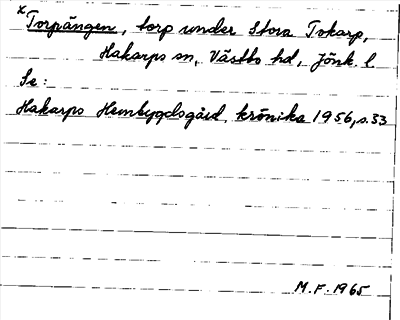 x Torpängen, torp under Stora Tokarp,
Hakarps sn, Västbo hd, Jönk. l
Se:
Hakarps Hembygdsgård, krönika 1956, s. 33
M.F. 1965